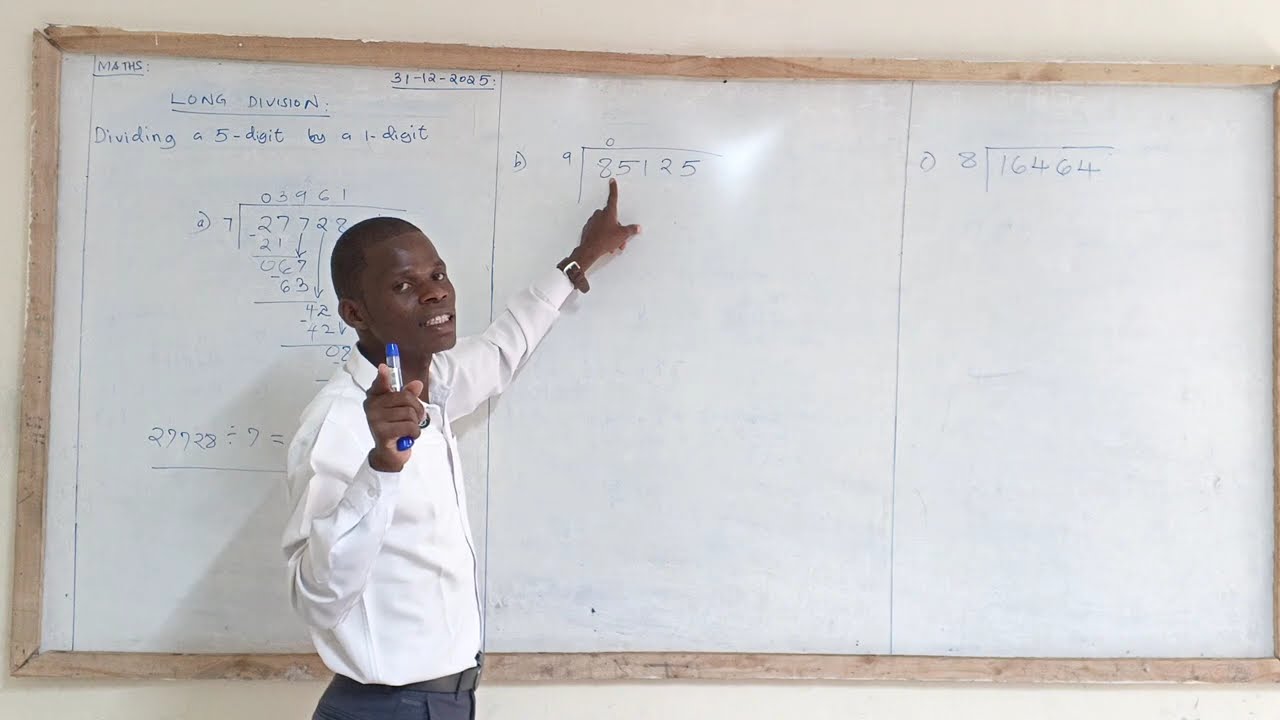 MATHS:
31-12-2025:
LONG DIVISION:
Dividing a 5-digit by a 1-digit
03961
a) 7 27728
- 21
067
- 63
42
- 42
08
27728 ÷ 7 =
0
b) 9 85125
c) 8 16464